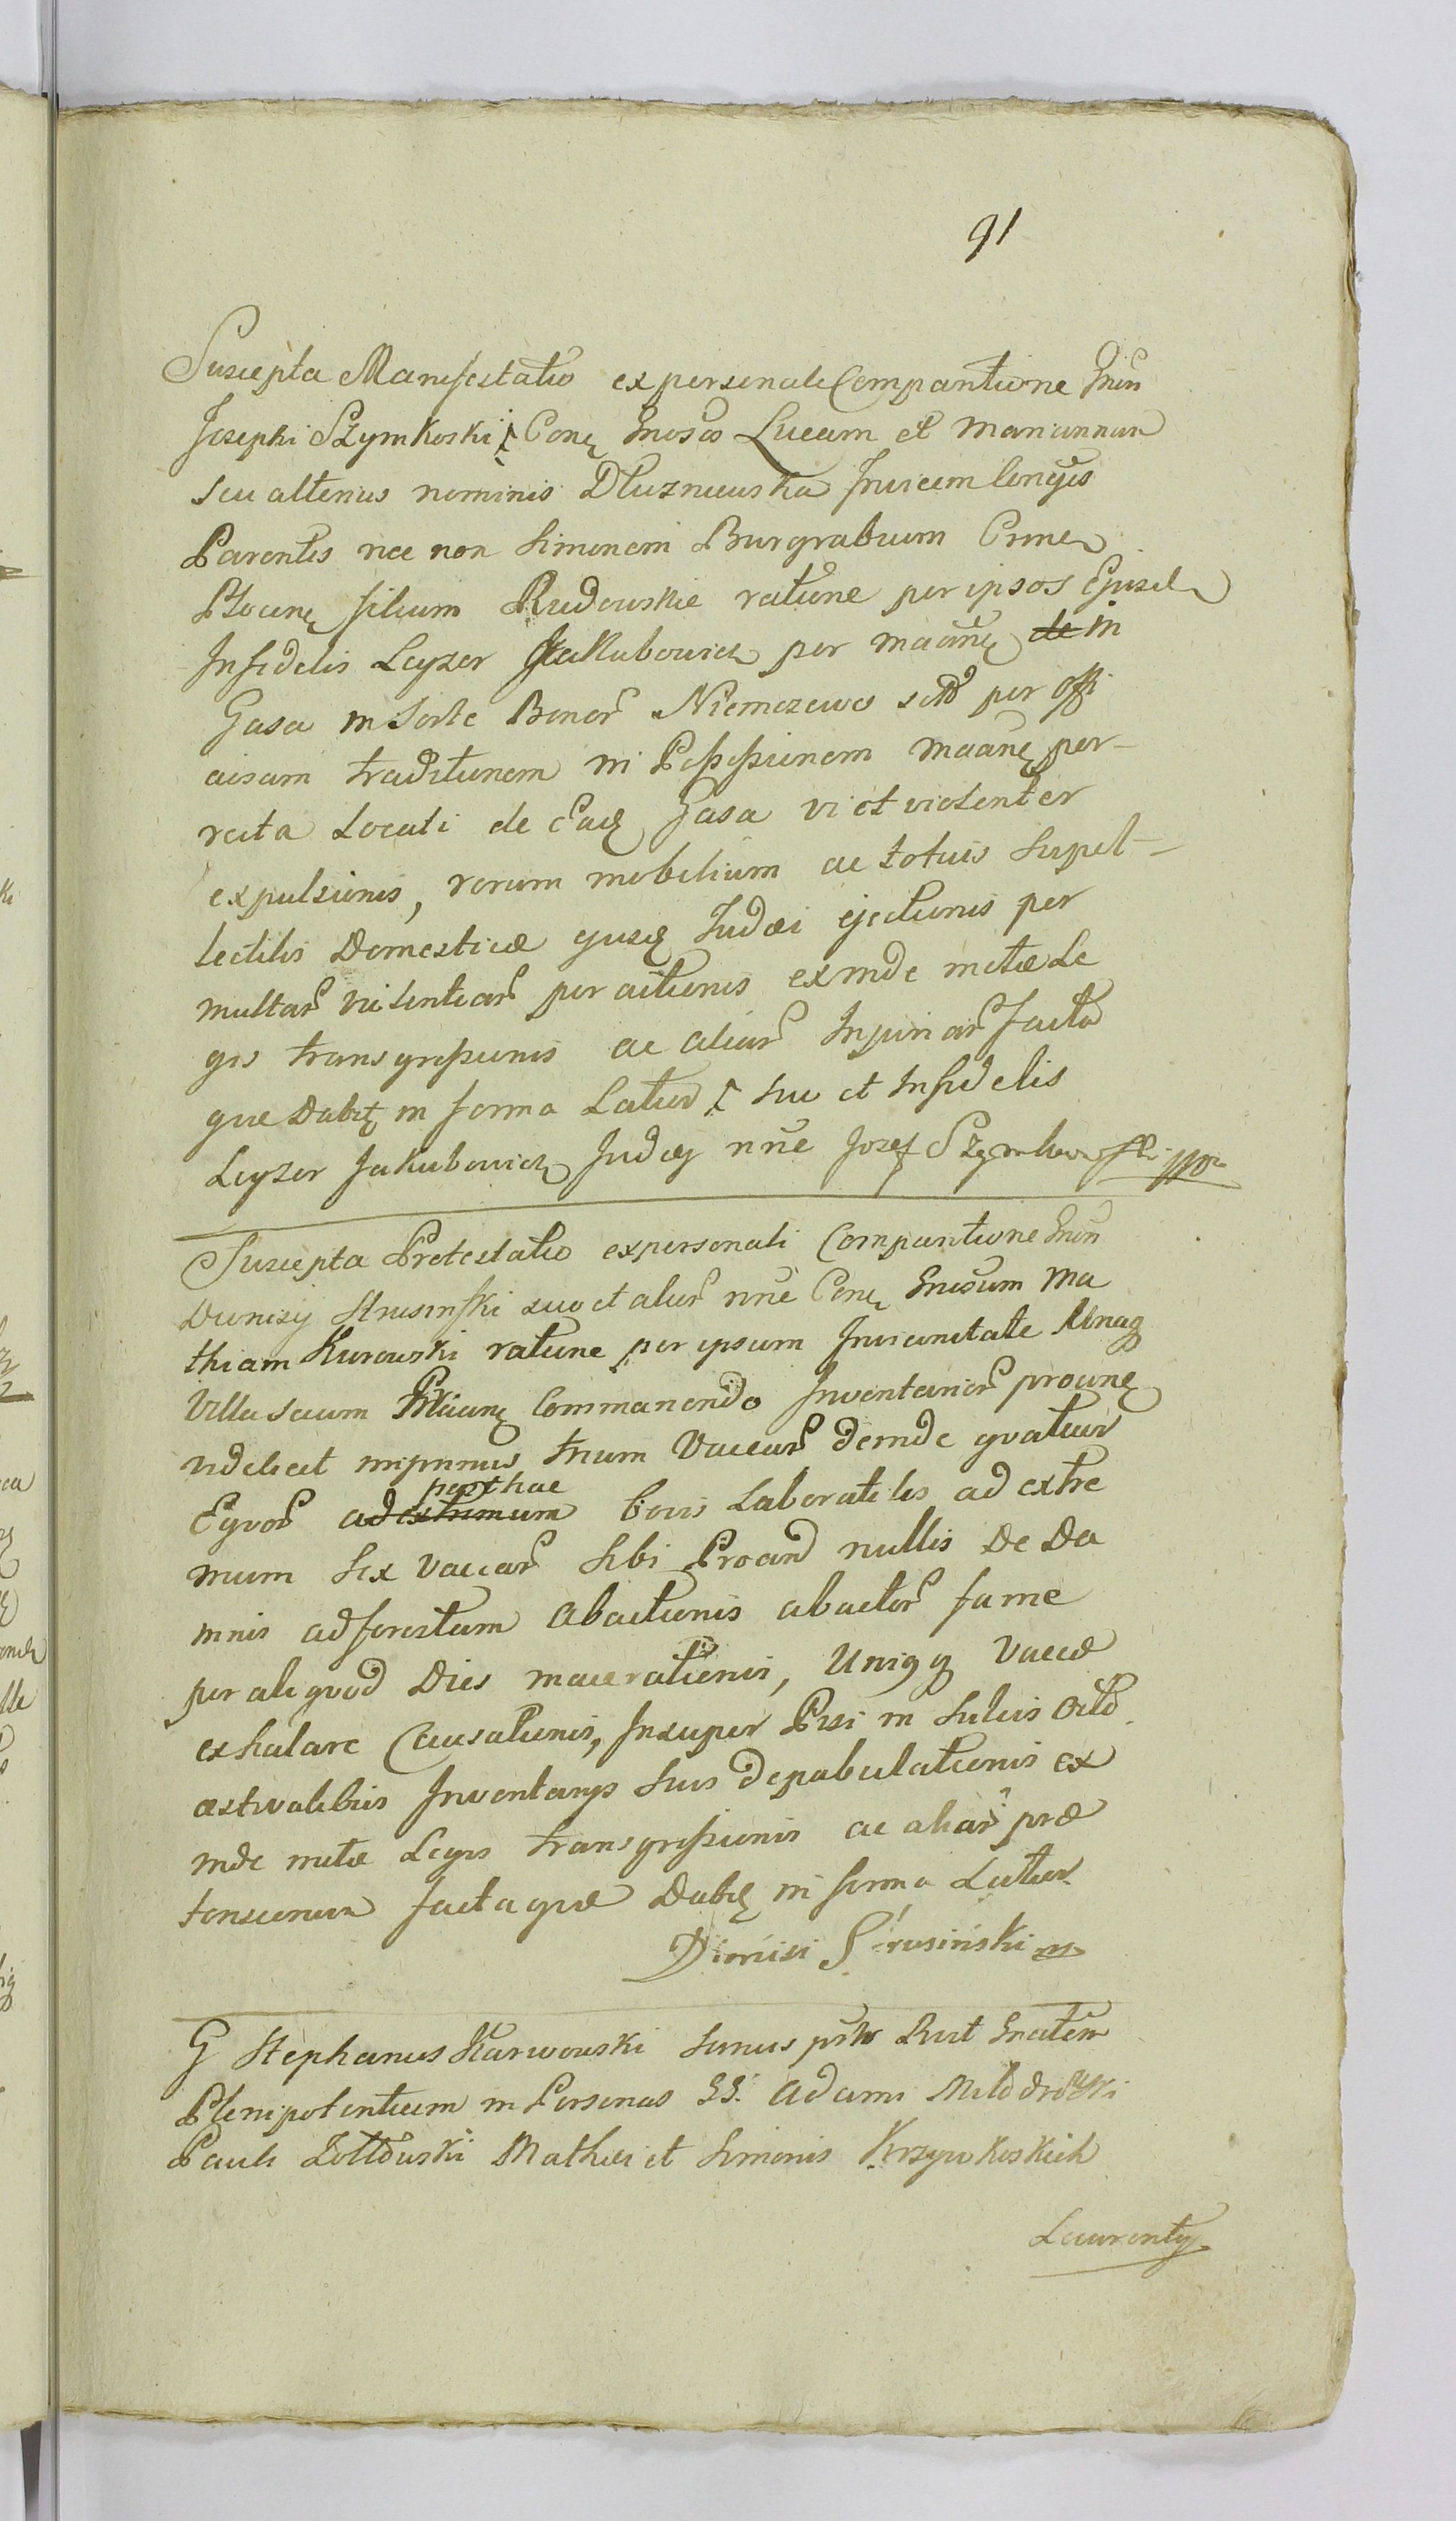 91
Suscepta Manifestatio ex personali Comparitione Gnen
Josephi Szymkoski Conę Gnosos Lucam et Mariannam
seu alterius nominis Dluzniewska Invicem lonęes
Parentes nec non Simonem Burgrabium Crnem
Plocenę filium Rudowskie ratione per ipsos Ejusd
Infidelis Leyzer Jakubowicz per maanę de in
Gasa in sorte Bonor Niemczewo scto per offi
aisam traditionem in Possessionem maanę per-
reita Locati de Eadę Gasa vi et violenter
expulsionis, rerum mobilium ac totius supel-
lectilis Domesticæ ejusę Judæi ejectionis per
multar violentiar per actionis exinde metæ Le
gis transgressionis ac aliar Injuriar facta
que Dabitę in forma Latiori suo et Infidelis
Leyzer Jakubowicz Judæj nne Jozef Szymkowski mpr
Suscepta Protestatio ex personali Comparitione Gnen
Dionisij Strusinski suo et alior nne Conę Gnosum Ma
thiam Kurowski ratione per ipsum In vicinitate Unaq
Villa secum commanendo Inventarior procinę
videlicet inprimis trium Vaccar deinde quatuor
Eqvor ad extrimum posthae bovis Laboratilis ad extre
mum sex Vaccar sibi Proand nullis De Da
mnis adforistum abactionis abactor fame
per aliqvod Dies macerationis, Uniqq Vaccæ
exhalare Causationis, Insuper Pisi in Suluis Octo
æstivalibus Inventarys suis depabulationis ex
inde metæ Legis transgressionis ac aliar præ
tensionum facta que Dabitę in forma Latiori
Dionisi Strusiński mp
G Stephanus Karwowski sanus pstr Rscit Gnatem
Plenipotentiam in Personas GG. Adami Milodrozki
Pauli Zottowski Mathei et Simonis Krzywkoskich
Laurenty